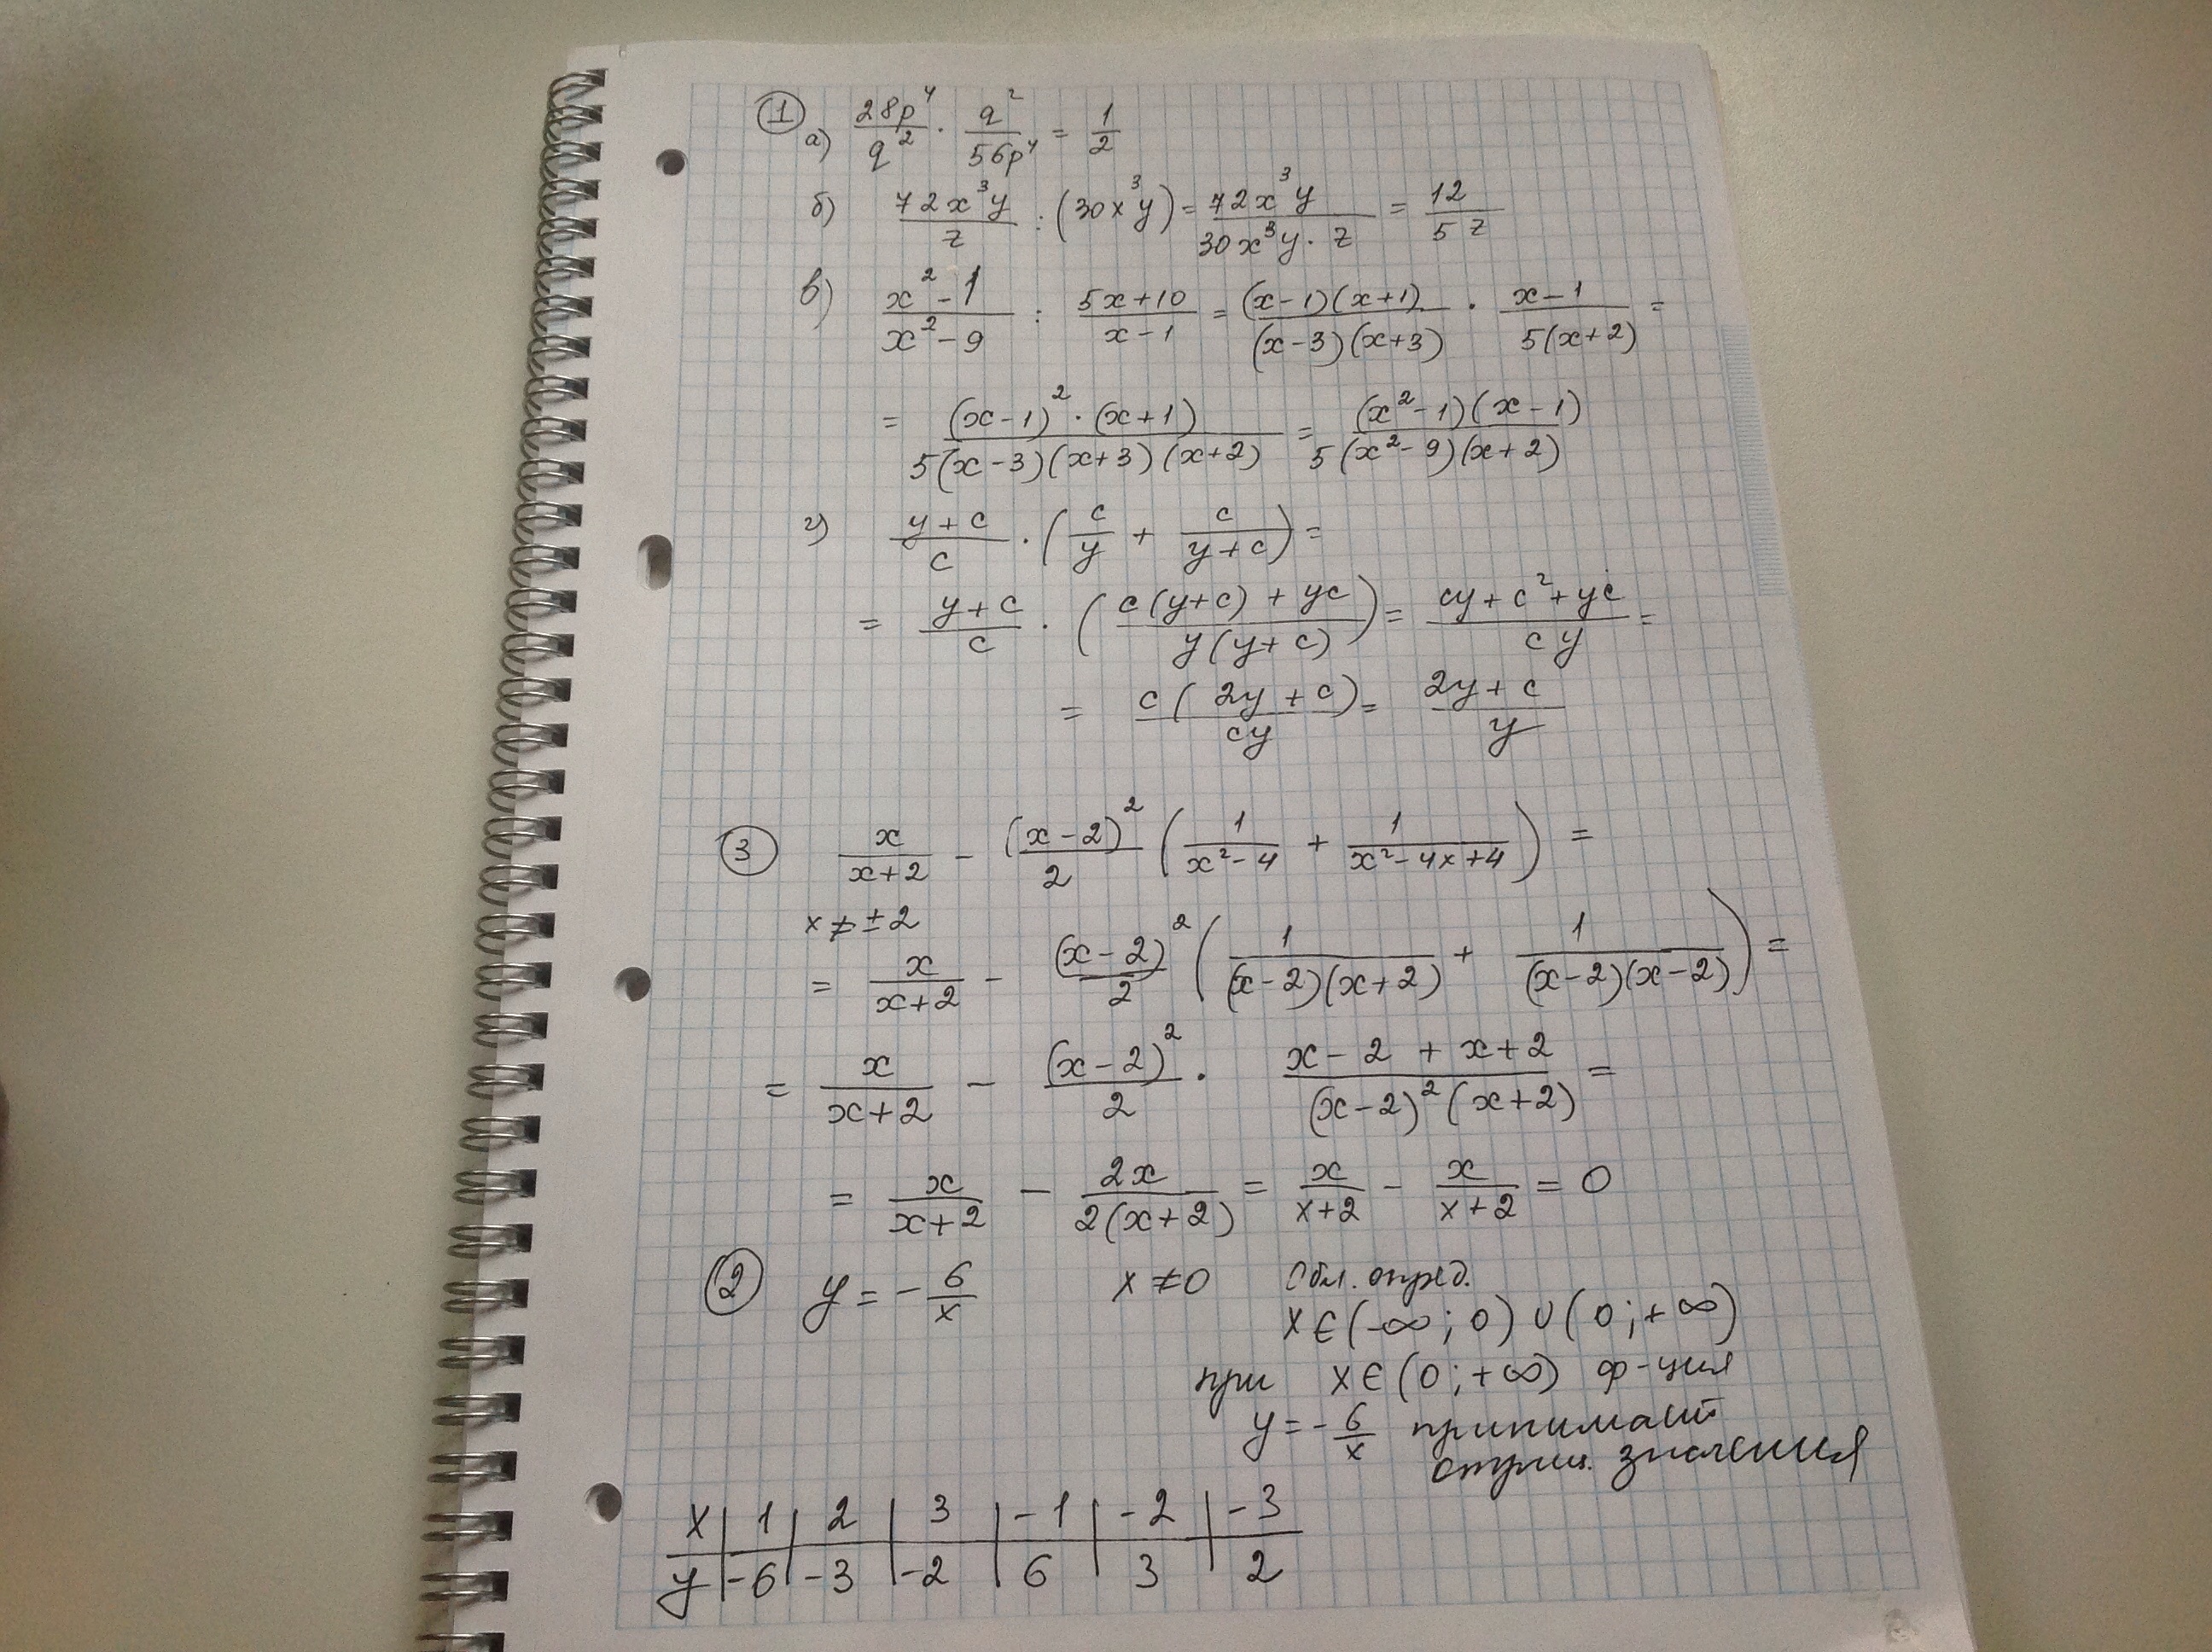 ① а) 28p⁴/q² · q²/56p⁴ = 1/2
б) 72x³y/z : (30x³y) = 72x³y/30x³y·z = 12/5z
в) x²-1/x²-9 : 5x+10/x-1 = (x-1)(x+1)/(x-3)(x+3) · x-1/5(x+2) =
= (x-1)²·(x+1)/5(x-3)(x+3)(x+2) = (x²-1)(x-1)/5(x²-9)(x+2)
г) y+c/c · (c/y + c/y+c) =
= y+c/c · (c(y+c)+yc/y(y+c)) = cy+c²+yc/cy =
= c(2y+c)/cy = 2y+c/y
③ x/x+2 - (x-2)²/2 (1/x²-4 + 1/x²-4x+4) =
x ≠ ±2
= x/x+2 - (x-2)²/2 (1/(x-2)(x+2) + 1/(x-2)(x-2)) =
= x/x+2 - (x-2)²/2 · x-2+x+2/(x-2)²(x+2) =
= x/x+2 - 2x/2(x+2) = x/x+2 - x/x+2 = 0
② y = -6/x x ≠ 0 Обл. опред.
x∈(-∞; 0) ∪ (0; +∞)
при x∈(0; +∞) ф-ция
y = -6/x принимает
отриц. значения
x | 1 | 2 | 3 | -1 | -2 | -3
y | -6 | -3 | -2 | 6 | 3 | 2